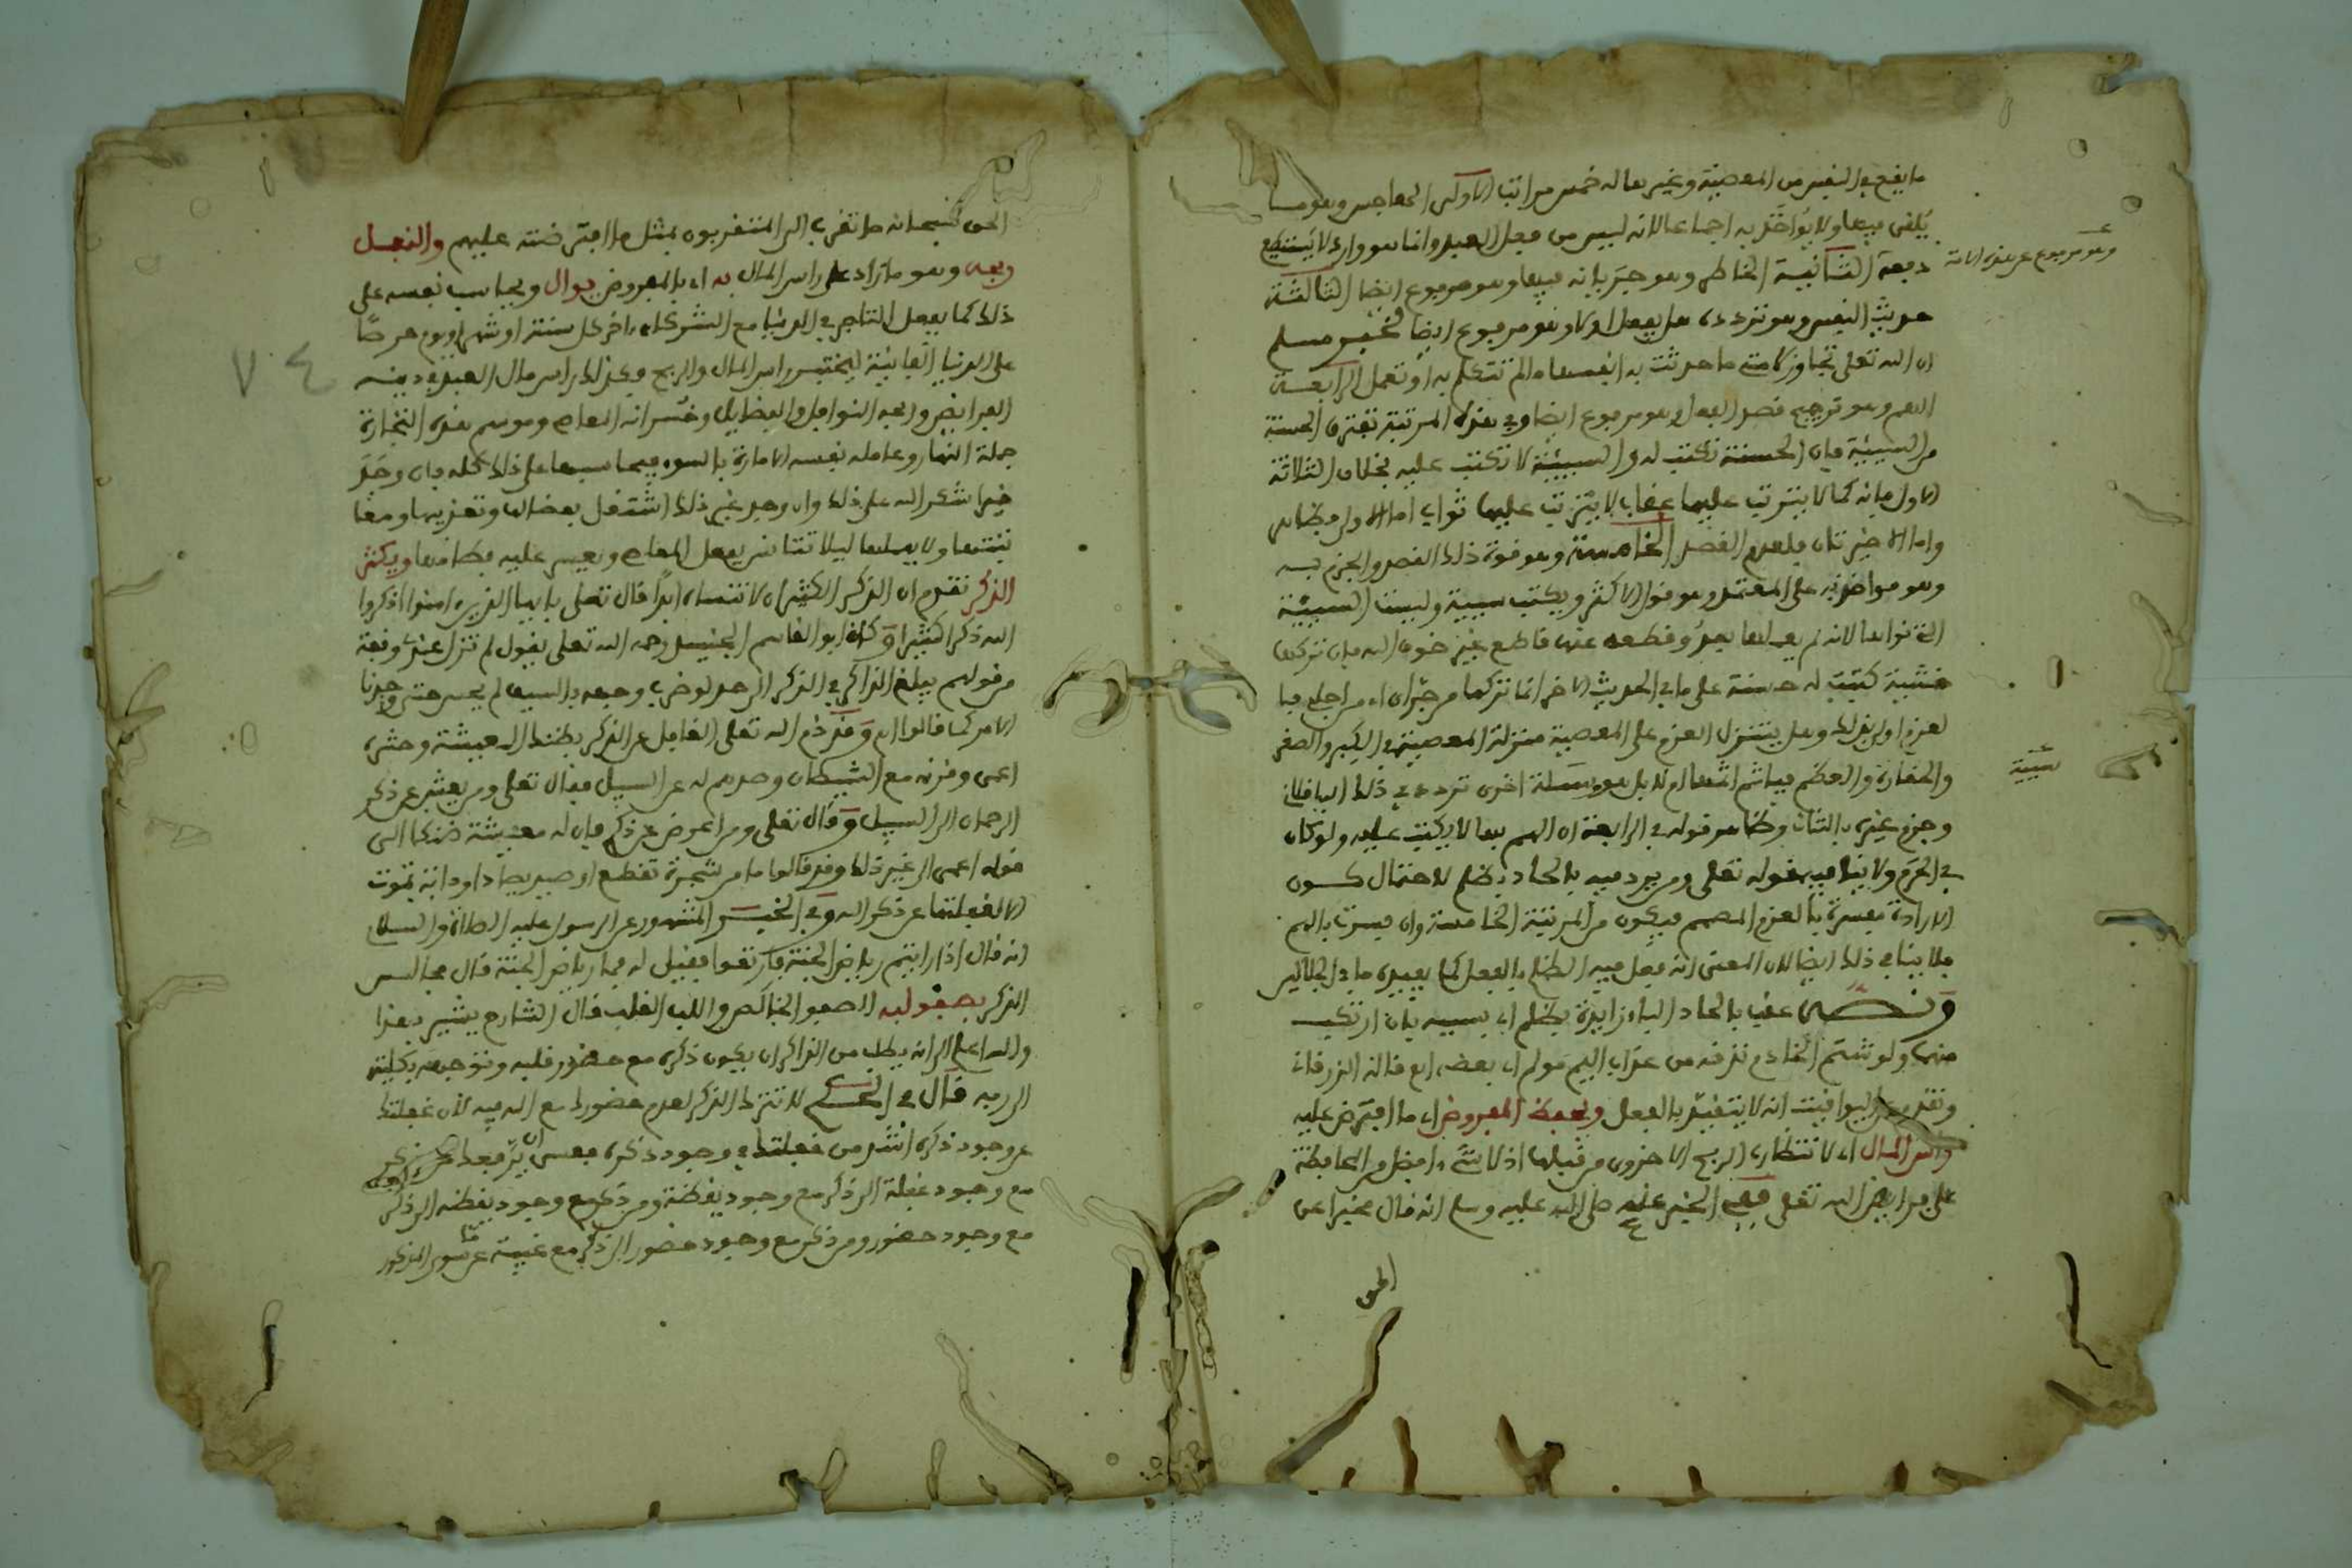 ما يقع في النفس من المعصية وغيرها له خمس مراتب الاولى الهاجس وهو ما
يلقى فيها ولا يؤاخذ به اجماعا لانه ليس من فعل العبد وانما هو وارد لا يستطيع
وهو مرفوع عن هذه الامة
دفعه الثانية الخاطر وهو جريانه فيها وهو مرفوع ايضا الثالثة
حديث النفس وهو تردده هل يفعل او لا وهو مرفوع ايضا لخبر مسلم
ان الله تعلى تجاوز لامتي ما حدثت به انفسها ما لم تتكلم به او تعمل الرابعة
الهم وهو ترجيح قصد الفعل وهو مرفوع ايضا وفي هذه المرتبة تفترق الحسنة
من السيئة فان الحسنة تكتب له والسيئة لا تكتب عليه بخلاف الثلاثة
الاول فانه كما لا يترتب عليها عقاب لا يترتب عليها ثواب اما الاولى فظاهر
واما الاخيرتان فلعدم القصد الخامسة وهو قوة ذلك القصد والجزم به
وهو مواخذ به على المعتمد وهو قول الاكثر ويكتب سيئة وليست السيئة
التي نواها لانه لم يعملها بعد وقطعه عنها قاطع غير خوف الله فان تركها
خشية كتبت له حسنة على ما في الحديث الاخر انما تركها من جراي اي من اجلي فيا
لعزم اولى بذلك وهل يتنزل العزم على المعصية منزلة المعصية في الكبر والصغر
سيئة
والحقارة والعظم فياثم اثمها ام لا بل هو سيئة اخرى تردد في ذلك الباقلاني
وجزم غيره بالثاني وظاهر قوله في الرابعة ان الهم بها لا يكتب عليه ولو كان
في الحرم ولا ينافيه قوله تعلى ومن يرد فيه بالحاد بظلم لاحتمال كون
الارادة مفسرة بالعزم المصمم فيكون من المرتبة الخامسة وان فسرت بالهم
فلا ينافي ذلك ايضا لان المعنى انه فعل فيه الظلم بالفعل كما يفيده ما في الجلالين
ونصه عقب بالحاد الباء زايدة بظلم اي بسببه بان ارتكب
منهيا ولو شتم الخادم نذقه من عذاب اليم مولم اي بعضه اه قاله الزرقاني
وتقدم عن اليواقيت انه لا يتقيد بالفعل ويحفظ المفروض اي ما افترض عليه
راس المال اي لا تنتظار الربح الاخروي من قبلها اذ لا شيء افضل من المحافظة
على فرايض الله تعلى ففي الخبر عنه صلى الله عليه وسلم انه قال مخبرا عن
الحق
الحق سبحانه ما تقرب الي المتقربون بمثل ما افترضته عليهم والنفل
ربحه وهو ما زاد على راس المال به اي بالمفروض يوالي ويحاسب نفسه على
ذلك كما يفعل التاجر في الدنيا مع الشركاء اخر كل سنة او شهر او يوم حرصا
على الدنيا الفانية ليختبر راس المال والربح وكذلك راس مال العبد في دينه
٧٤
الفرايض وربحه النوافل والفضايل وخسرانه المعاصي وموسم هذه التجارة
جملة النهار وعامله نفسه الامارة بالسوء فيحاسبها على ذلك كله فان وجد
خيرا شكر الله على ذلك وان وجد غير ذلك اشتغل بعقابها وتعذيبها ومعا
تبتها ولا يهملها ليلا تتانس بفعل المعاصي ويعسر عليه فطامها ويكثر
الذكر تقدم ان الذكر الكثير ان لا تنساه ابدا قال تعلى يا ايها الذين امنوا اذكروا
الله ذكرا كثيرا وكان ابو القاسم الجنيد رحمه الله تعلى يقول لم تزل عندي وقفة
من قولهم يبلغ الذاكر في الذكر الى حد لو ضرب وجهه بالسيف لم يحس حتى وجدنا
الامر كما قالوا اه وقد ذم الله تعلى الغافل عن الذكر بضنك المعيشة وحشره
اعمى وقرنه مع الشيطان وصدهم له عن السبيل فقال تعلى ومن يعش عن ذكر
الرحمان الى السبيل وقال تعلى ومن اعرض عن ذكري فان له معيشة ضنكا الى
قوله اعمى الى غير ذلك وقد قالوا ما من شجرة تقطع او صيد يصاد او دابة تموت
الا لغفلتها عن ذكر الله وفي الخبر المشهور عن الرسول عليه الصلاة والسلام
انه قال اذا رايتم رياض الجنة فارتعوا فقيل له فما رياض الجنة قال مجالس
الذكر بصفو لبه الصفو الخالص واللب القلب قال الشارح يشير بهذا
والله اعلم الى انه يطلب من الذاكر ان يكون ذكره مع حضور قلبه وتوجهه بكليته
الى ربه قال في الحكم لا تترك الذكر لعدم حضورك مع الله فيه لان غفلتك
عن وجود ذكره اشد من غفلتك في وجود ذكره فعسى ان يرفعك من ذكر
مع وجود غفلة الى ذكر مع وجود يقظة ومن ذكر مع وجود يقظة الى ذكر
مع وجود حضور ومن ذكر مع وجود حضور الى ذكر مع غيبة عما سوى المذكور